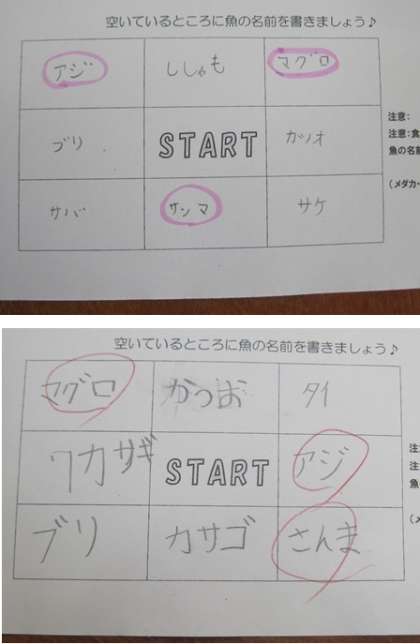 空いているところに魚の名前を書きましょう♪
アジ ししゃも マグロ
ブリ START カツオ
サバ サンマ サケ
注意:
注意:食
魚の名前
(メダカー
空いているところに魚の名前を書きましょう♪
マグロ かつお タイ
ワカサギ START アジ
ブリ カサゴ さんま
注
注
魚
(メ